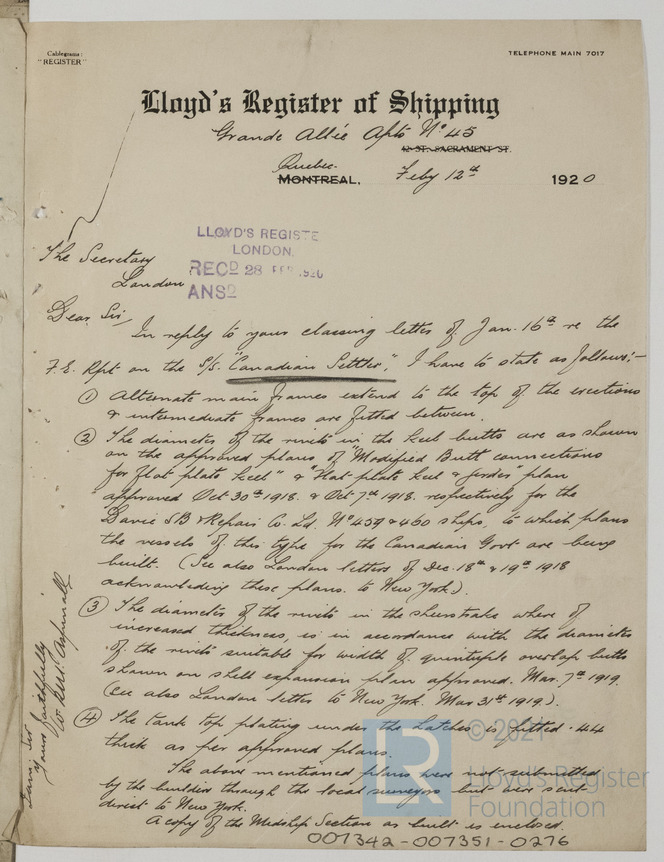 Cablegrams:
"REGISTER"
TELEPHONE MAIN 7017
Lloyd's Register of Shipping
Grande Allée Apts Nº 45
42 ST. SACRAMENT ST.
Quebec
MONTREAL, Feby 12th 1920
LLOYD'S REGISTE
LONDON.
REC'D 28 FEB 1920
ANSD
The Secretary
London
Dear Sir,
In reply to your classing letter of Jan. 16th re the
F.E. Rpt on the S/S. "Canadian Settler," I have to state as follows:-
① Alternate main frames extend to the top of the erections
& intermediate frames are fitted between.
② The diameter of the rivets in the keel butts are as shown
on the approved plans of "Modified Butt connections
for flat plate keel" & "Flat plate keel & girder" plan
approved Oct 30th 1918. & Oct 7th 1918. respectively for the
Davie S.B & Repair Co. Ld. Nº 459 & 460 ships, to which plans
the vessels of this type for the Canadian Govt are being
built. (See also London letters of Dec. 18th & 19th 1918
acknowledging these plans. to New York.)
③ The diameter of the rivets in the sheerstrake where of
increased thickness, is in accordance with the diameter
of the rivets suitable for width of quintuple overlap butts
shewn on shell expansion plan approved. Mar. 7th 1919.
(See also London letter to New York. Mar 31st 1919.)
④ The tank top plating under the hatches is fitted .44
thick as per approved plans.
The above mentioned plans were not submitted
by the builders through the local surveyors but were sent
direct to New York.
A copy of the Midship Section as built is enclosed.
Dear Sir
Yours faithfully
Aspinall
© 2021
LR
Lloyd's Register
Foundation
007342-007351-0276